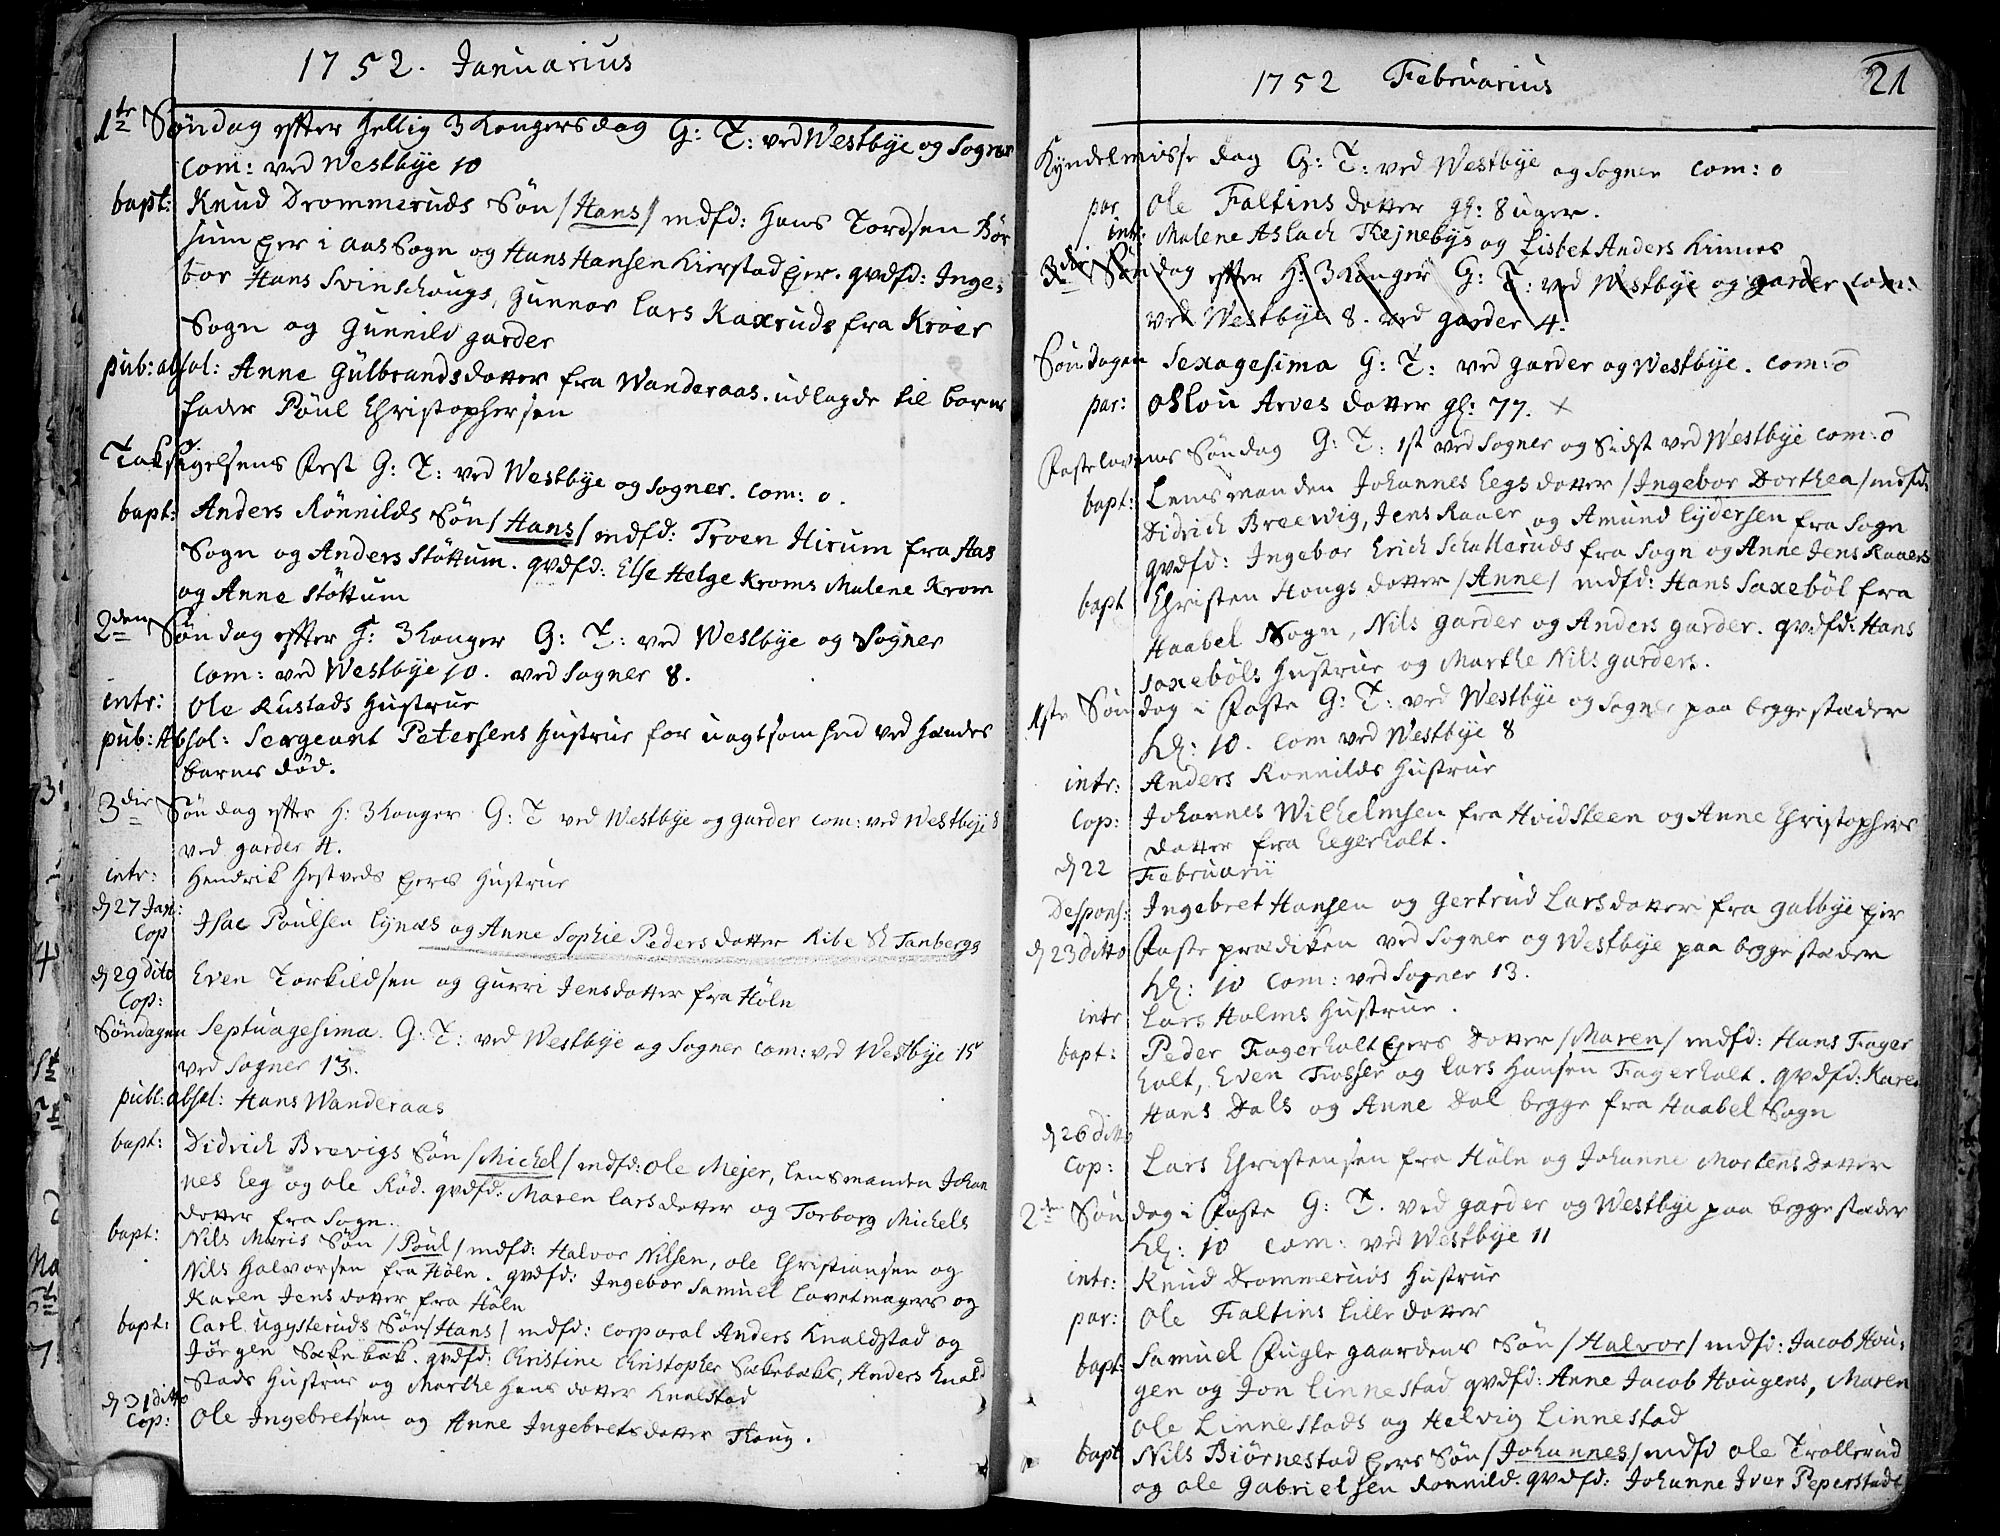 1752. Januarius
1te Søndag efter Hellig 3 Kongers dag G: T: ved Westbye og Sogner
Com: ved Westbye 10
bapt: Knud Drommeruds Søn /Hans/ mdfd: Hans Tordsen Bør
sum Ejer i Aas Sogn og Hans Hansen Kierstad Ejer. qvdfd: Inge:
bor Hans Svinschougs, Gunnor Lars Kaxruds fra Kroer
Sogn og Gunnild garder
pub: absol: Anne Gulbrandsdatter fra Wanderaas. udlagde til barne
fader Poul Christophersen
Taksigelsens Fest G: T: ved Westbye og Sogner. Com: 0.
bapt: Anders Rønnilds Søn /Hans/ mdfd: Troen Hirum fra Aas
Sogn og Anders Støttum. qvdfd: Else Helge Kroms Malene Krom
og Anne Støttum
2den Søndag efter H: 3 Konger G: T: ved Westbye og Sogner
Com: ved Westbye 10. ved Sogner 8.
intr: Ole Rustads Hustrue
pub: Absol: Sergeant Petersens Hustrue for uagtsomhed ved hendes
barns død.
3die Søndag efter H: 3 Konger G: T ved Westbye og garder com: ved Westbye 8
ved garder 4.
intr: Hendrik Hestveds Ejers Hustrue
d 27 Jan:
Cop Isac Poulsen Lynæs og Anne Sophie Peders datter Ribe Tanbergs
d 29 dito Even Torkildsen og Gurri Jensdatter fra Høln
Cop:
Søndagen Septuagesima. G: T: ved Westbye og Sogner com: ved Westbye 15
ved Sogner 13.
publ: absol: Hans Wanderaas
bapt: Didrich Brevigs Søn /Michel/ mdfd: Ole Mejer, Lensmanden Johan
nes Eeg og Ole Rød. qvdfd: Maren Larsdatter og Torborg Michels
datter fra Sogn.
bapt: Nils Muris Søn /Poul/ mdfd: Halvor Nilsen, Ole Christiansen og
Nils Halvorsen fra Høln. qvdfd: Ingebor Samuel Lavetmagers og
Karen Jensdatter fra Høln
bapt: Carl Ugysteruds Søn /Hans/ mdfd: Corporal Anders Knaldstad og
Jørgen Sækebæk. qvdfd: Christine Christopher Sækebæks, Anders Knald
stads Hustrue og Marthe Hans datter Knalstad
d 31 ditto
Cop: Ole Ingebretsen og Anne Ingebretsdatter Skoug.
1752 Februarius
21
Kyndelmisse dag G: T: ved Westbye og Sogner com: 0
par Ole Faltins datter gl: 8 uger.
intr: Malene Aslach Thejnebys og Lisbet Anders Kinnes
3die Søndag efter H: 3 Konger G: T: ved Westbye og garder com:
ved Westbye 8. ved garder 4.
Søndagen Sexagesima G: T: ved garder og Westbye. com: 0
par: Oslou Arves datter gl: 77. x
Fastelavns Søndag G: T: 1st ved Sogner og Sidst ved Westbye com: 0
bapt: Lensmanden Johannes Eegs datter /Ingebor Dorthea/ mdfd:
Didrich Breewig, Jens Raaer og Amund Eydersen fra Sogn
qvdfd: Ingebor Erich Schotteruds fra Sogn og Anne Jens Raaers
bapt Christen Hougs datter /Anne/ mdfd: Hans Saxebøl fra
Haabel Sogn, Nils garder og Anders garder. qvdfd: Hans
Saxebøls Hustrue og Marthe Nils garders.
1ste Søndag i Faste G: T: ved Westbye og Sogner paa begge stæder
Kl: 10. Com ved Westbye 8
intr: Anders Ronnilds Hustrue
Cop: Johannes Wilhelmsen fra Hvidsteen og Anne Christophers
datter fra Eegerholt.
d 22 Februarii
Despons: Ingebret Hansen og Gertrud Larsdatter fra galbye Ejer
d 23 ditto Faste prædiken ved Sogner og Westbye paa begge stæder
Kl: 10 Com: ved Sogner 13.
intr Lars Holms Hustrue.
bapt: Peder Fagerholt Ejers Dotter /Maren/ mdfd: Hans Fager
holt, Even Fosser og Lars Hansen Fagerholt. qvdfd: Karen
Hans Dals og Anne Dal begge fra Haabel Sogn
d 26 ditto
Cop: Lars Christensen fra Høln og Johanne Mortens Datter
2den Søndag i Faste G: T. ved garder og Westbye paa begge stæder
Kl: 10 Com: ved Westbye 11
intr: Knud Drommeruds Hustrue
par: Ole Faltins Lille datter
bapt: Samuel Fuglegaardens Søn /Halvor/ mdfd: Jacob Hou:
gen og Jon Linnestad qvdfd: Anne Jacob Hougens, Maren
Ole Linnestads og Helvig Linnestad
bapt Nils Biørnestad Ejers Søn /Johannes/ mdfd Ole Trollerud
og Ole Gabrielsen Ronnild. qvdfd: Johanne Iver Peperstads